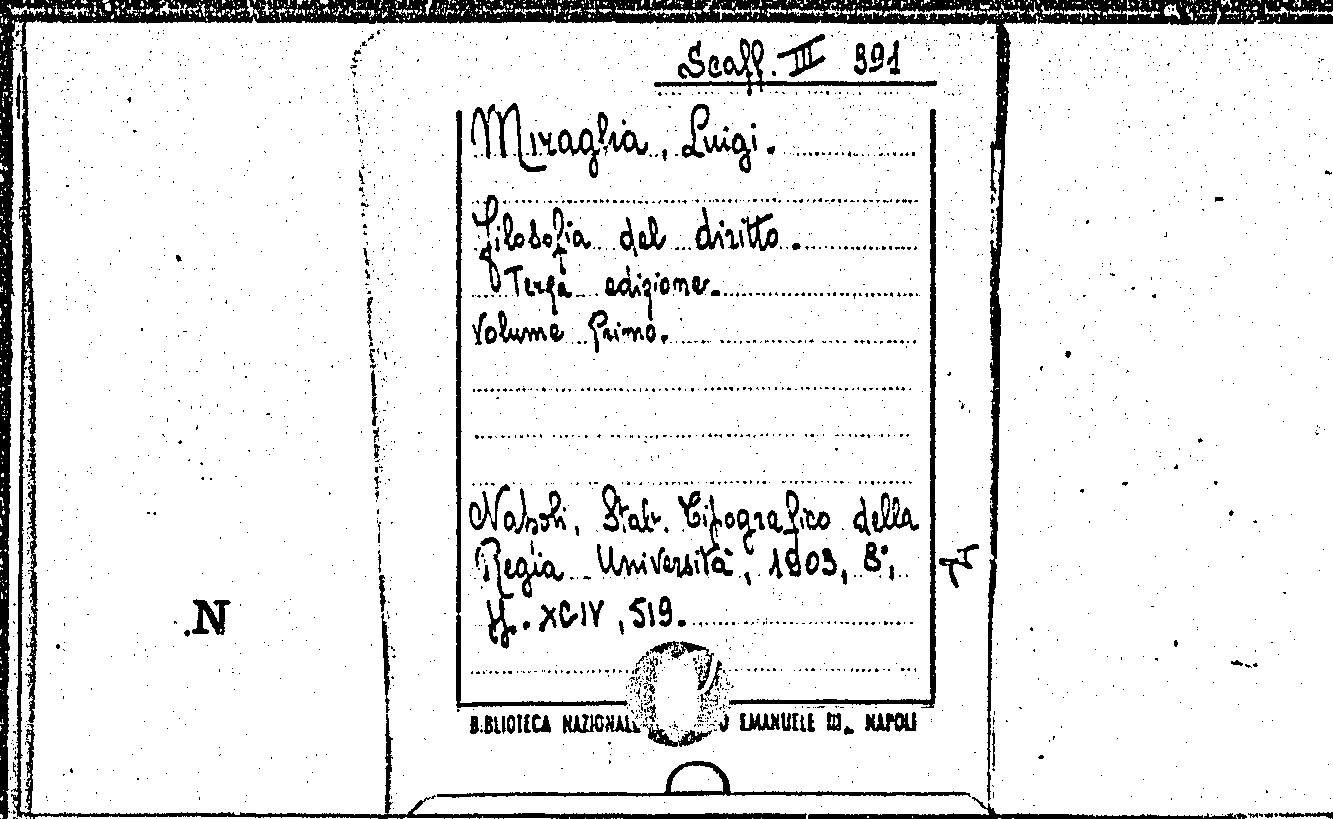 Scaff. III 391
Miraglia, Luigi.
Filosofia del diritto.
Terza edizione.
Volume Primo.
Napoli, Stab. Tipografico della
Regia Università, 1903, 8°,
pp. XCIV, 519.
BIBLIOTECA NAZIONALE EMANUELE III. NAPOLI
N